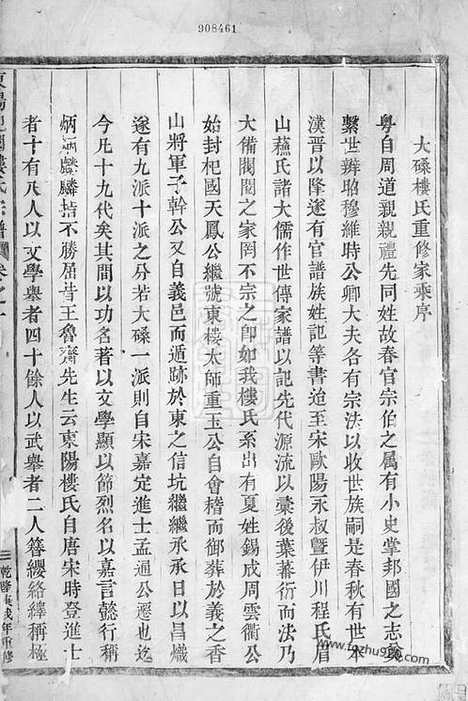 908461
大磉樓氏重修家乘序
粤自周道親親禮先同姓故春官宗伯之属有小史掌邦國之志奠
繫世辨昭穆維時公卿大夫各有宗法以收世族嗣是春秋有世本
漢晋以降遂有官譜族姓記等書迨至宋歐陽永叔暨伊川程氏眉
山蘇氏諸大儒作世傳家譜以記先代源流以彚後葉蕃衍而法乃
大備閥閱之家罔不宗之卽如我樓氏系出有夏姓錫成周雲衢公
始封杞國天鳳公繼號東樓太師重玉公自會稽而御葬於義之香
山將軍子幹公又自義邑而遁跡於東之信坑繼繼承承日以昌熾
遂有九派十派之分若大磉一派則自宋嘉定進士孟通公遷也迄
今凡十九代矣其間以功名著以文學顯以節烈名以嘉言懿行稱
炳炳麟麟指不勝屈昔王魯齋先生云東陽樓氏自唐宋時登進士
者十有八人以文學舉者四十餘人以武舉者二人簪纓絡繹稱極
樓氏宗譜 卷之一
三 乾隆庚戌年重修